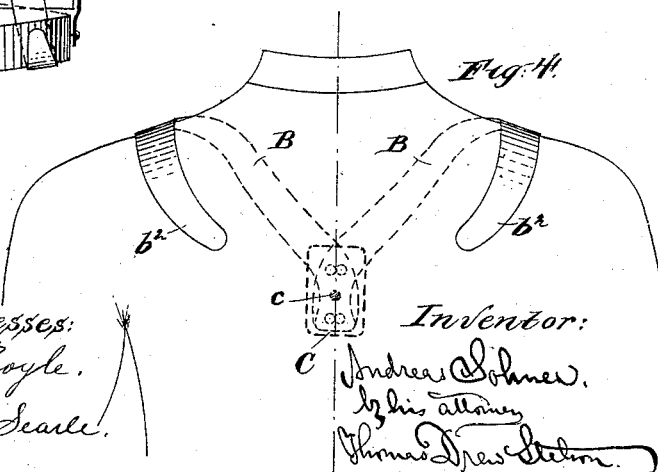 Fig. 4.
B
B
b²
b²
c
C
esses:
oyle.
Searle.
Inventor:
Andreas Söhner.
by his attorney
Thomas Drew Stetson